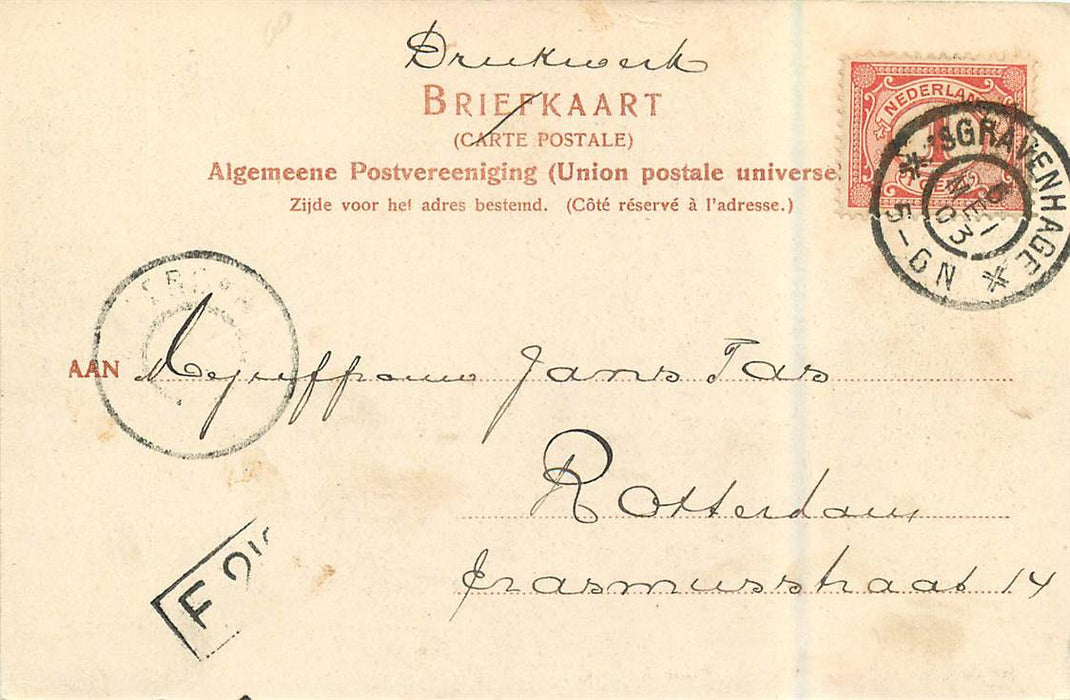 Drukwerk
BRIEFKAART
(CARTE POSTALE)
Algemeene Postvereeniging (Union postale universe
Zijde voor het adres bestemd. (Côté réservé à l'adresse.)
NEDERLAND
1
CENT
'SGRAVENHAGE
MEI
03
5-6N
AAN Mejuffrouw Jans Tas
Rotterdam
Erasmusstraat 14
F